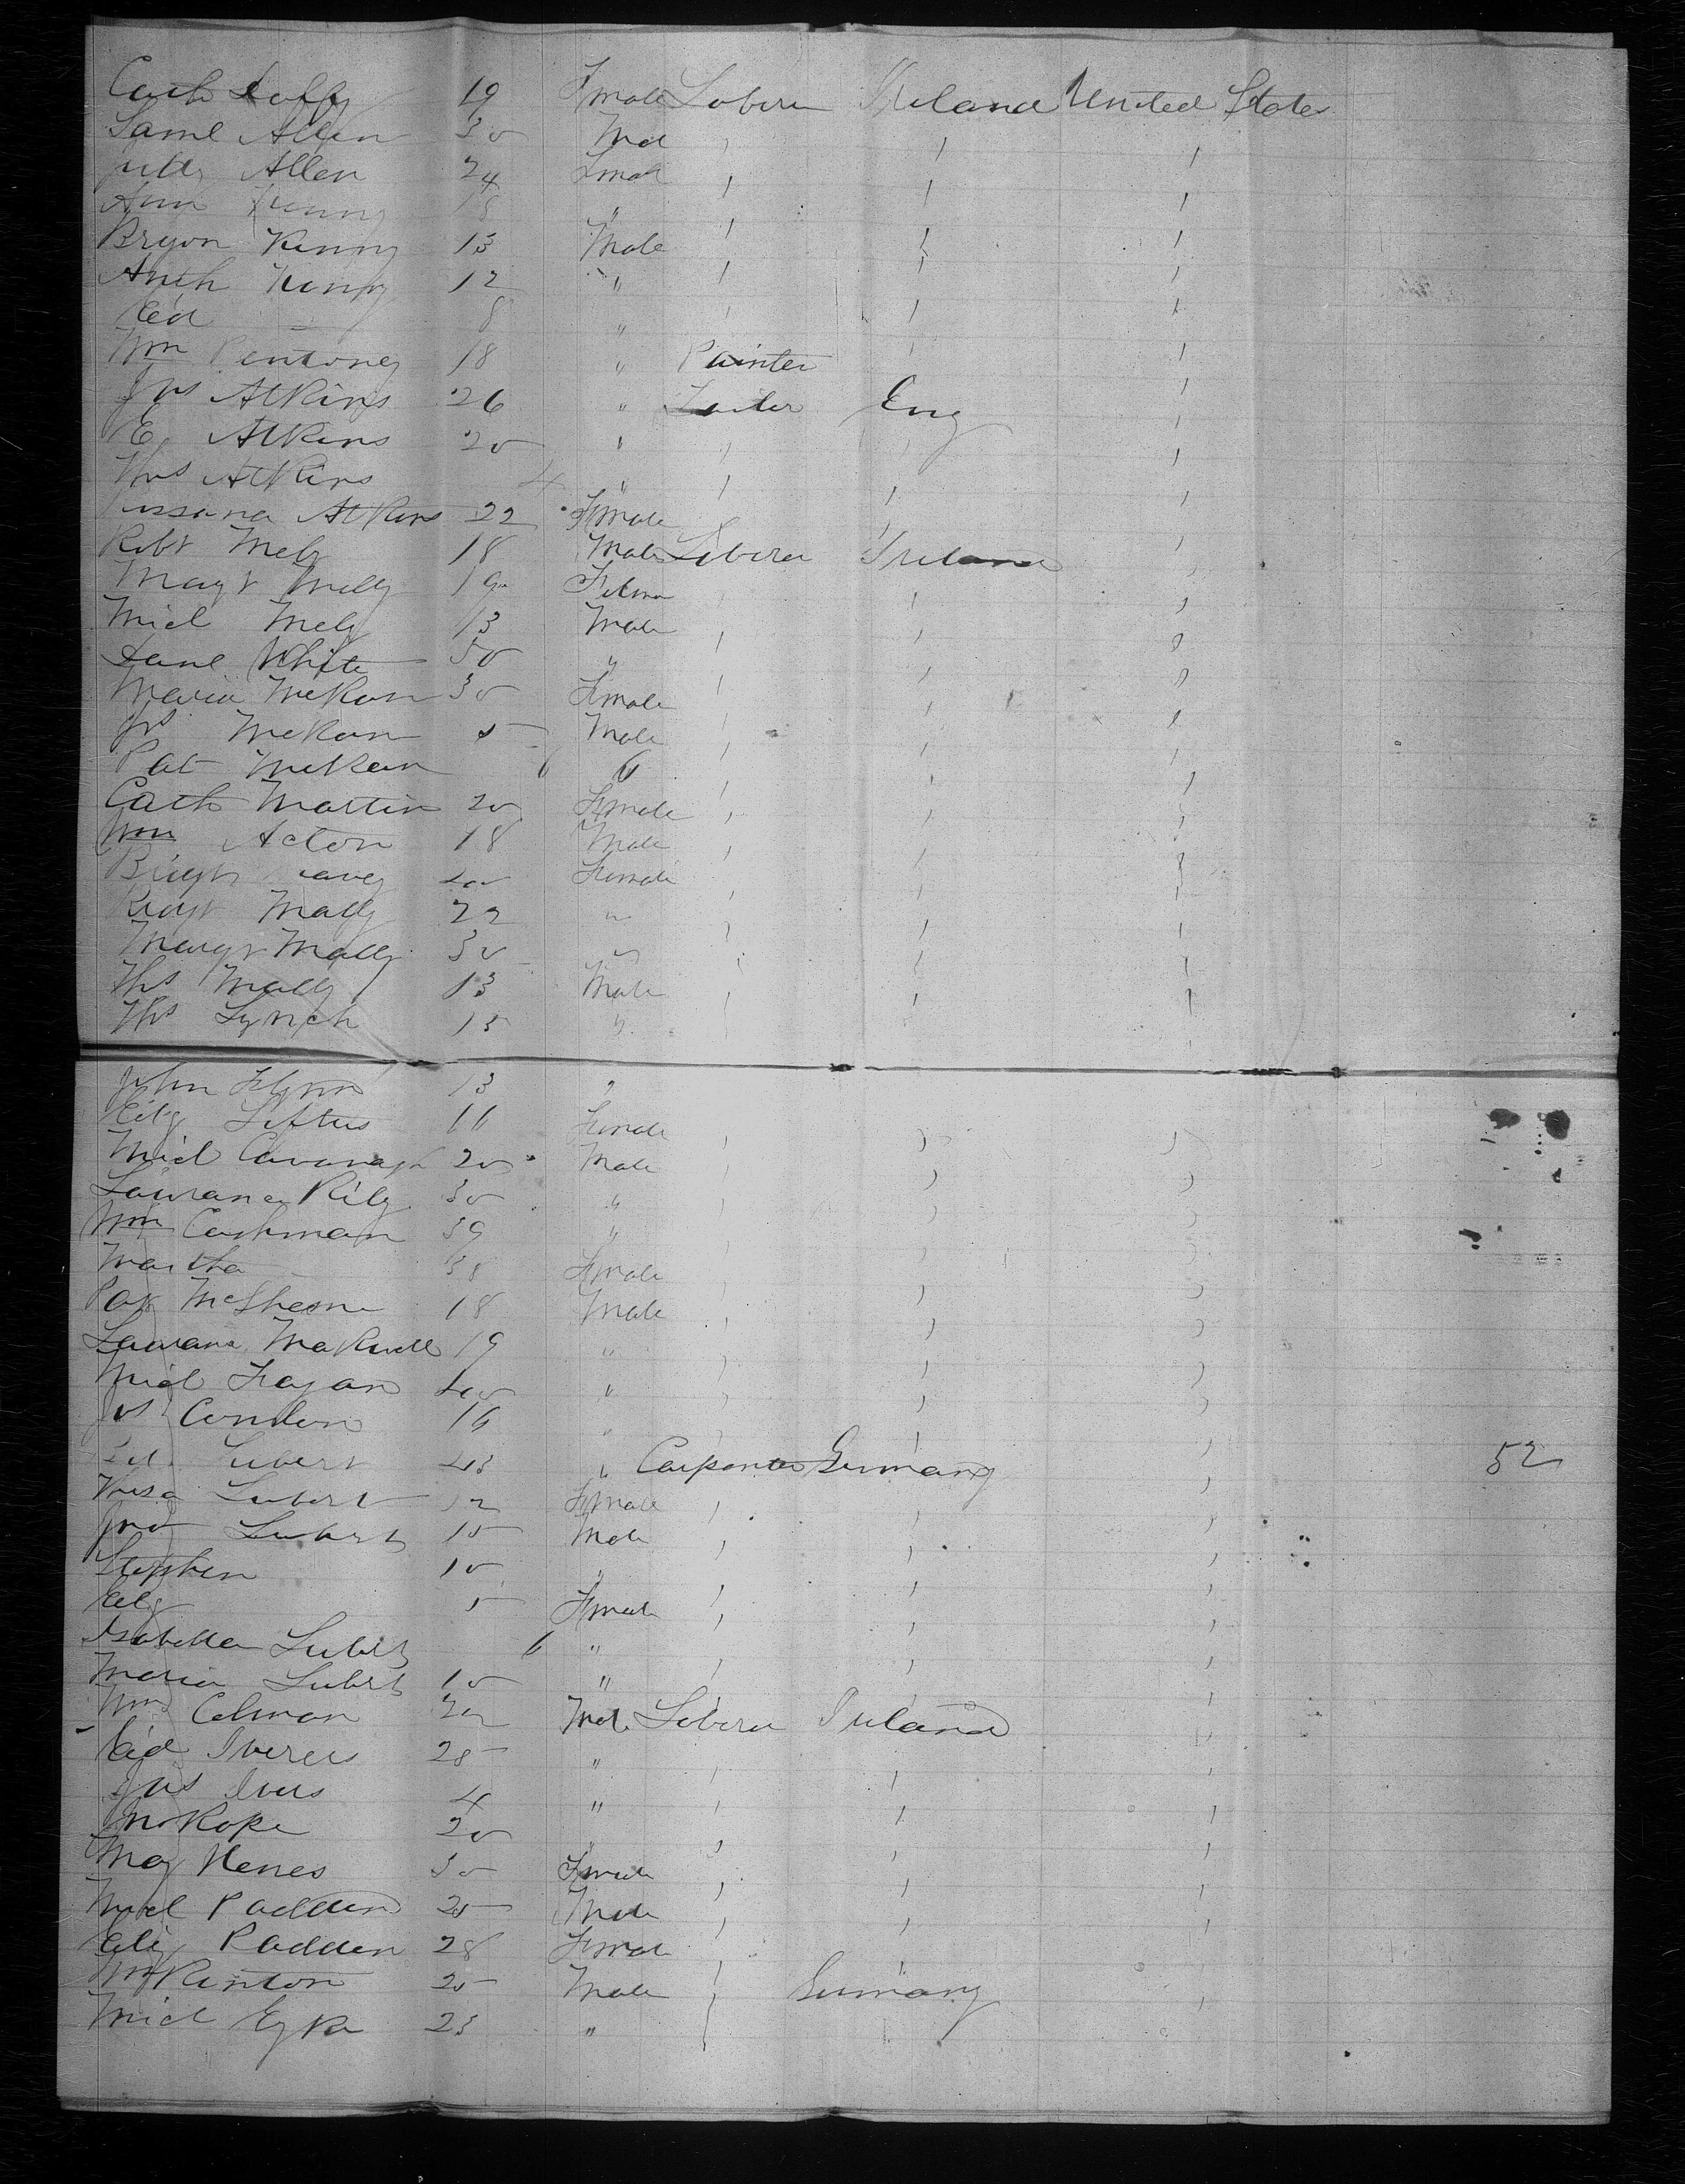 Cath Duffy 19 Fmale Labour Ireland United States
Saml Allen 30 Mal
Allen 24 Fmal
Ann Kenny 18 "
Bryon Kenny 13 Male
Anth Kenny 12 "
Ed 8 "
Wm 18 " Painter
Jas Atkins 26 " Tailor Eng
E Atkins 20 "
Thos Atkins 4 "
Atkins 22 Female
Robt Mely 18 Male Labour Ireland
Magt Melly 19 Felma
Micl Mely 13 Male
White 50 "
Maria McKeon 30 Fmale
Js McKeon 5 Male
Pat McKeon 6 "
Cath Martin 20 Fmale
Wm Acton 18 Male
Bridgt Female
Malley 22 "
Margt Mally 30 "
Ths Mally 13 Male
Ths Lynch 15 "
John Flynn 13 "
Eliz Loftus 11 Female
Micl Cavanagh 20 Male
Lawrance Rily 30 "
Wm Cashman 39 "
Martha 38 Fmale
Pat McShean 18 Male
Lawrance 19 "
Micl Fagan "
Jas Condon 16 "
Lubert 43 " Carpenter Germany 52
Lubert 12 Fmale
Jno Lubert 15 Male
Stephen 10 "
Eliz 5 Fmale
Isabella Lubert 6 "
Maria Lubert 10 "
Wm Colman Male Labour Ireland
Ed Iveres 28 "
Jas Ivers 4 "
Jno Roper 20 "
May Henes 30 Fmale
Micl Padden 25 Male
Eliz Padden 28 Fmale
Wm Kinton 25 Male Germany
Micl 23 "